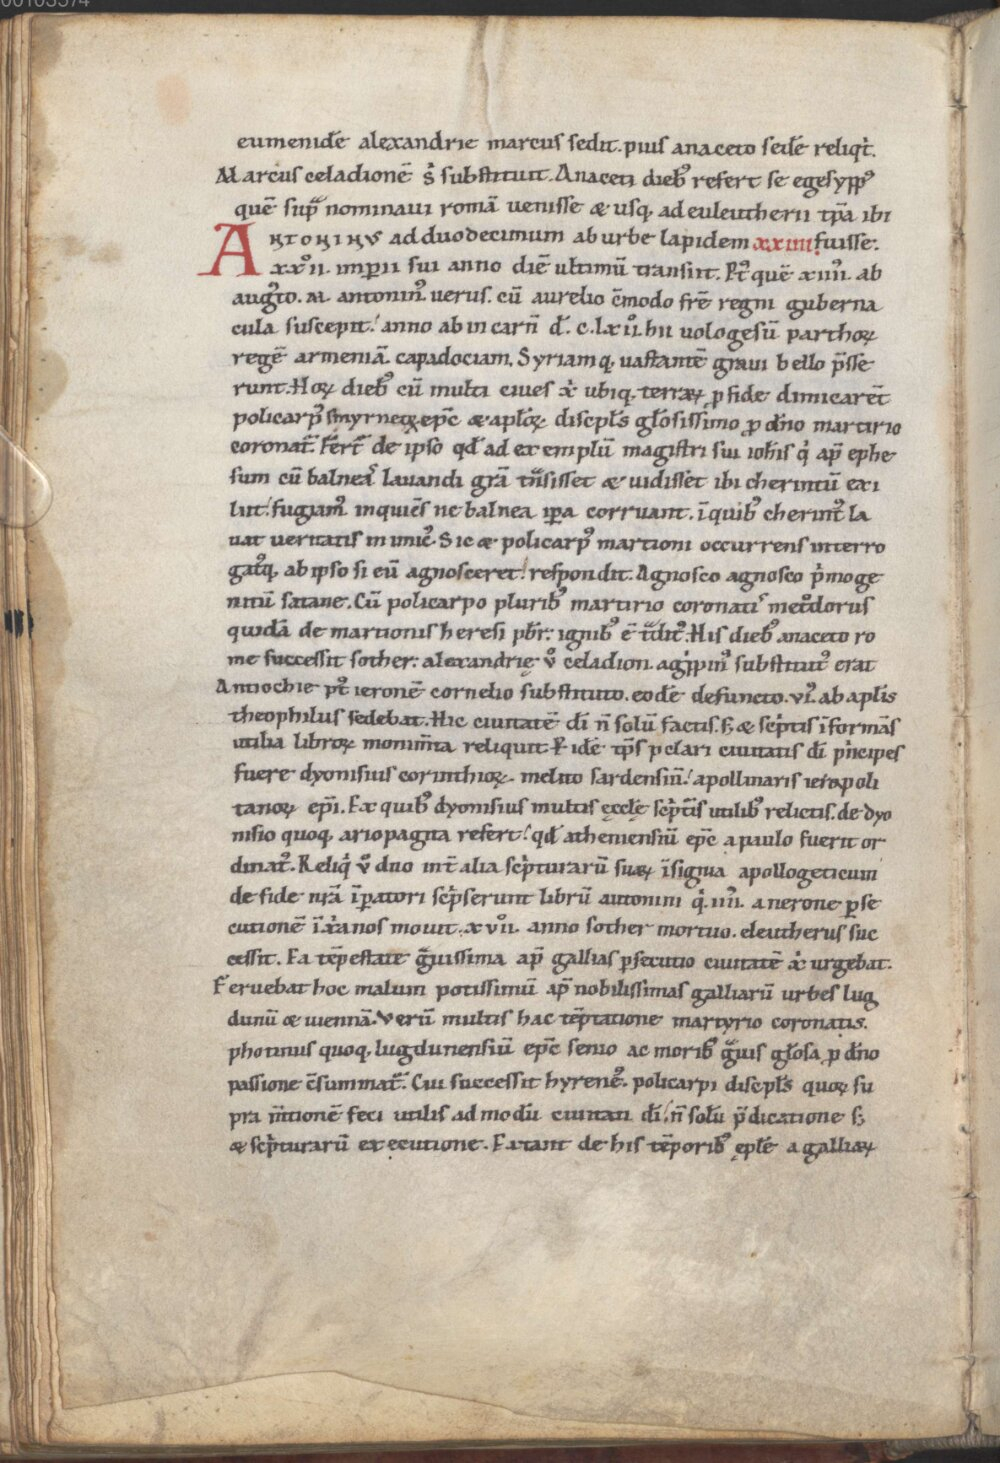 00103374
eumenidē alexandrie marcus sedit. pius anaceto sedē reliqͥt.
Marcus celadionē s̓ substituit. Anaceti diebꝰ refert se egesyppꝰ
quē supͣ nominaui romā uenisse & usq, ad euleutherii tp̄a ibi
ANTONINUS ad duodecimum ab urbe lapidem xxiiii fuisse.
xxͦii. imp̄ii sui anno diē ultimū transiit. Pꝰt quē xiiiiͦ. ab
augꝰto. M. antoninꝰ. uerus. cū aurelio c̄modo fr̄e regni guberna
cula suscepit. anno ab incarn̄ d̄. c. lxͦii. hii uologesū parthoꝝ
regē armeniā. capadociam. Syriamq, uastantē graui bello p̄sse
runt. Hoꝝ diebꝰ cū multi ciues xͥ ubiq, terraꝝ ꝓ fide dimicarēt
policarpꝰ smyrneoꝝ ep̄c & apl̄oꝝ discipl̄s gl̄osissimo ꝓ dn̄o martirio
coronat̄. Fert̄ de ipso qđ ad exemplū magistri sui ioħis qͥ ap̄ ephe
sum cū balneaͬ lauandi gr̄a tn̄sisset & uidisset ibi cherintū exi
liit. fugiamꝰ inquiēs ne balnea ip̄a corruant. ī quibꝰ cherintꝰ la
uat ueritatis inimicꝰ. Sic & policarpꝰ martioni occurrens interro
gatꝰq, ab ipso si eū agnosceret. respondit. Agnosco agnosco pͥmoge
nitū satane. Cū policarpo pluribꝰ martirio coronatiͬ metꝰdorus
quidā de martionis heresi pb̄r. ignibꝰ ē tͣditꝰ. His diebꝰ anaceto ro
me successit sother. alexandrię ṽ celadion. agͥppinꝰ substitutꝰ erat
Antiochie pꝰt ieronē cornelio substituto. eodē defuncto. viͦ. ab apl̄is
theophilus sedebat. Hic ciuitatē dī n̄ solū factis. s; & scͥptis īformās
utilia libroꝝ monim̄ta reliquit. Fidē tp̄s p̄clari ciuitatis dī pͥncipes
fuere dyonisius corinthioꝝ. melito sardensiū. apollinaris ierapoli
tanoꝝ ep̄i. Ex quibꝰ dyonisius multis ęccl̄ę scͥptis utilibꝰ relictis. de dyo
nisio quoq, ariopagita refert. qđ atheniensiū ep̄c a paulo fuerit or
dinatꝰ. Reliqͥ ṽ duo int̄ alia scͥpturarū suaꝝ īsignia apollogeticum
de fide nr̄a īꝑatori scͥpserunt librū antonini qͥ. iiiiͣ. a nerone ꝑse
cutionē ī xͥanos mouit. xvͦii. anno sother mortuo. eleutherus suc
cessit. Ea tēpestate gͣuissima ap̄ gallias ꝑsecutio ciuitatē xͥ urgebat.
Feruebat hoc malum potissimū ap̄ nobilissimas galliarū urbes lug
dunū & uiennā. Verū multis hac tēptatione martyrio coronatis.
photinus quoq, lugdunensiū ep̄c senio ac moribꝰ gͣuis gl̄osa ꝓ dn̄o
passione c̄summat̄. Cui successit hyreneꝰ. policarpi discipl̄s quoꝝ su
pra m̄tionē feci utilis admodū ciuitati dī. n̄ solū p̄dicatione s;
& scͥpturarū executione. Extant de his tēporibꝰ ępl̄ę a galliaꝝ